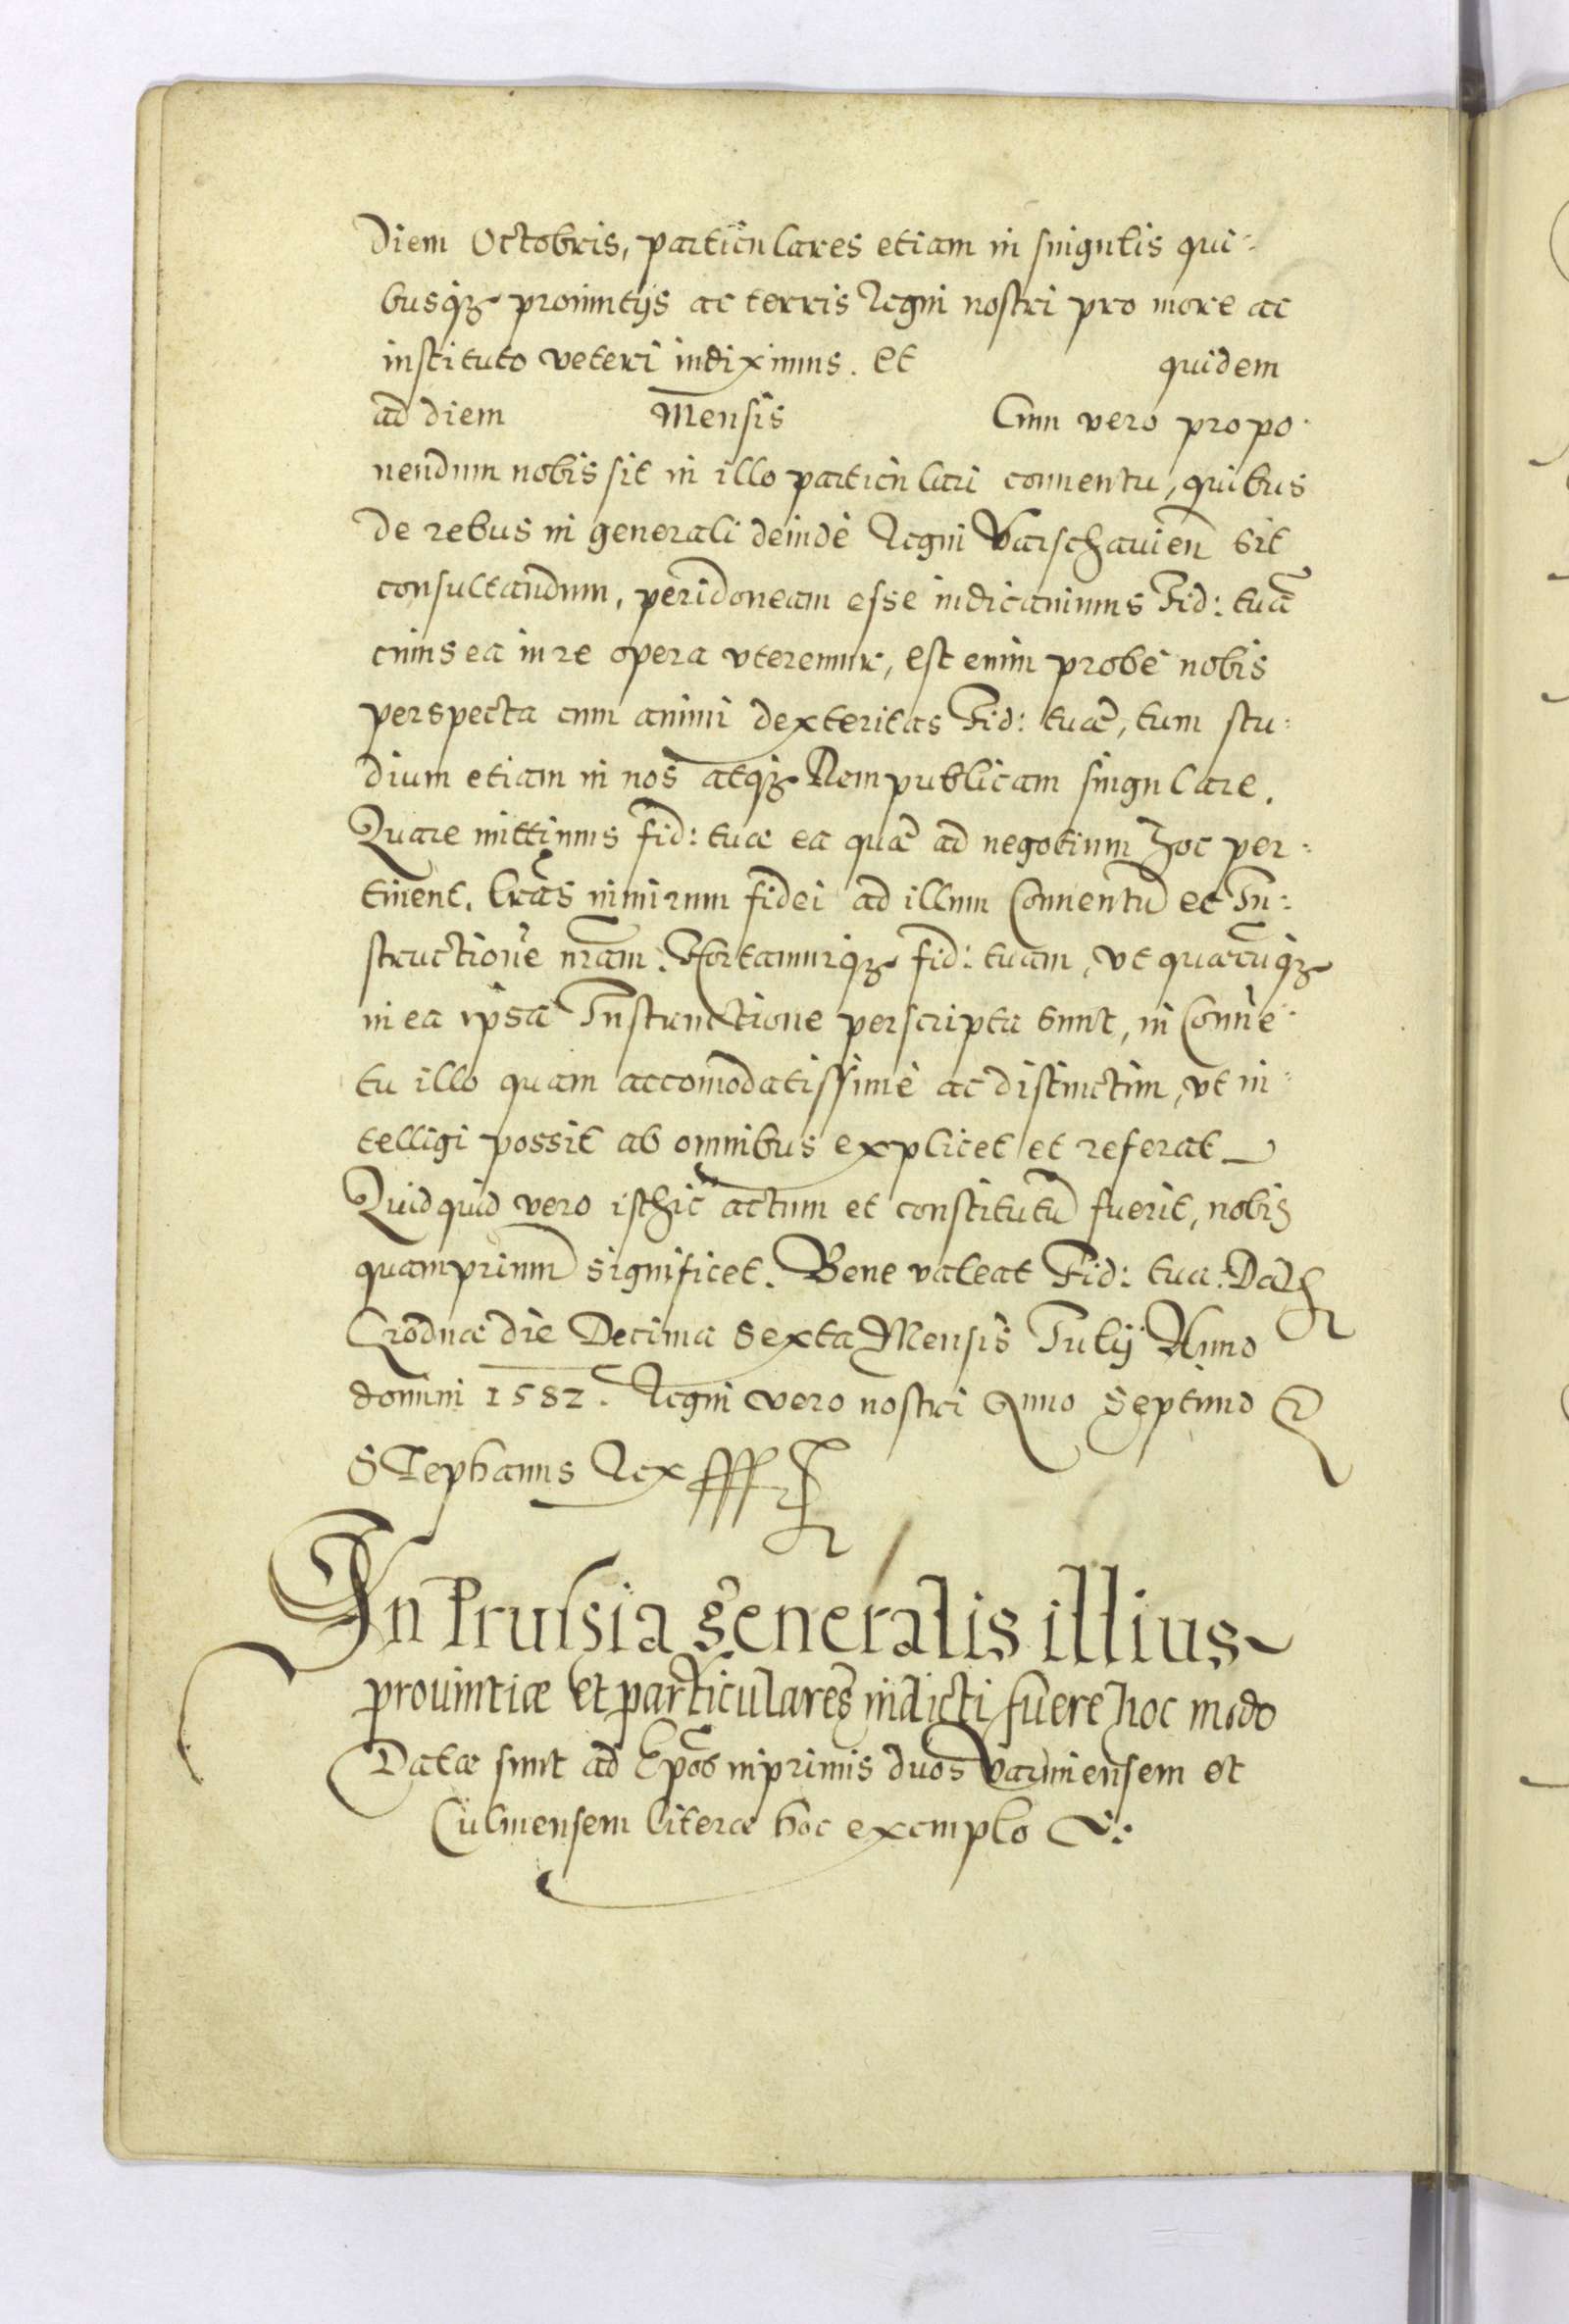 diem Octobris, particulares etiam in singulis qui-
busq₃ prouintijs ac terris Regni nostri pro more ac
instituto veteri indiximus. et quidem
ad diem Mensis Cum vero propo-
nendum nobis sit in illo particulari conuentu, quibus
de rebus in generali deinde Regni Varschauien̄ sit
consultandum, peridoneam esse iudicauimus Fid: tuā
cuius ea in re opera vteremur, est enim probè nobis
perspecta cum animi dexteritas Fid: tuæ, tum stu-
dium etiam in nos atq₃ Rempublicam singulare.
Quare mittimus fid: tuæ ea quæ ad negotium hoc per-
tinent. lr̄as nimirum fidei ad illum Conuentū et In-
structionē nr̄am. Hortamurq₃ fid: tuam, vt quæcūq₃
in ea ipsa Instructione perscripta sunt, in Conuē-
tu illo quam accomodatissimè ac distinctim, vt in-
telligi possit ab omnibus explicet et referat
Quidquid vero isthic actum et constitutū fuerit, nobis
quamprimū significet. Bene valeat Fid: tua. Dat
Grodnæ die Decima Sexta Mensis Iulij Anno
domini 1582. Regni vero nostri Anno Septimo
Stephanus Rex
In Prussia generalis illius
prouintiæ et particulares indicti fuere hoc modo
Datæ sunt ad Ep̄os inprimis duos Varmiensem et
Culmensem literæ hoc exemplo